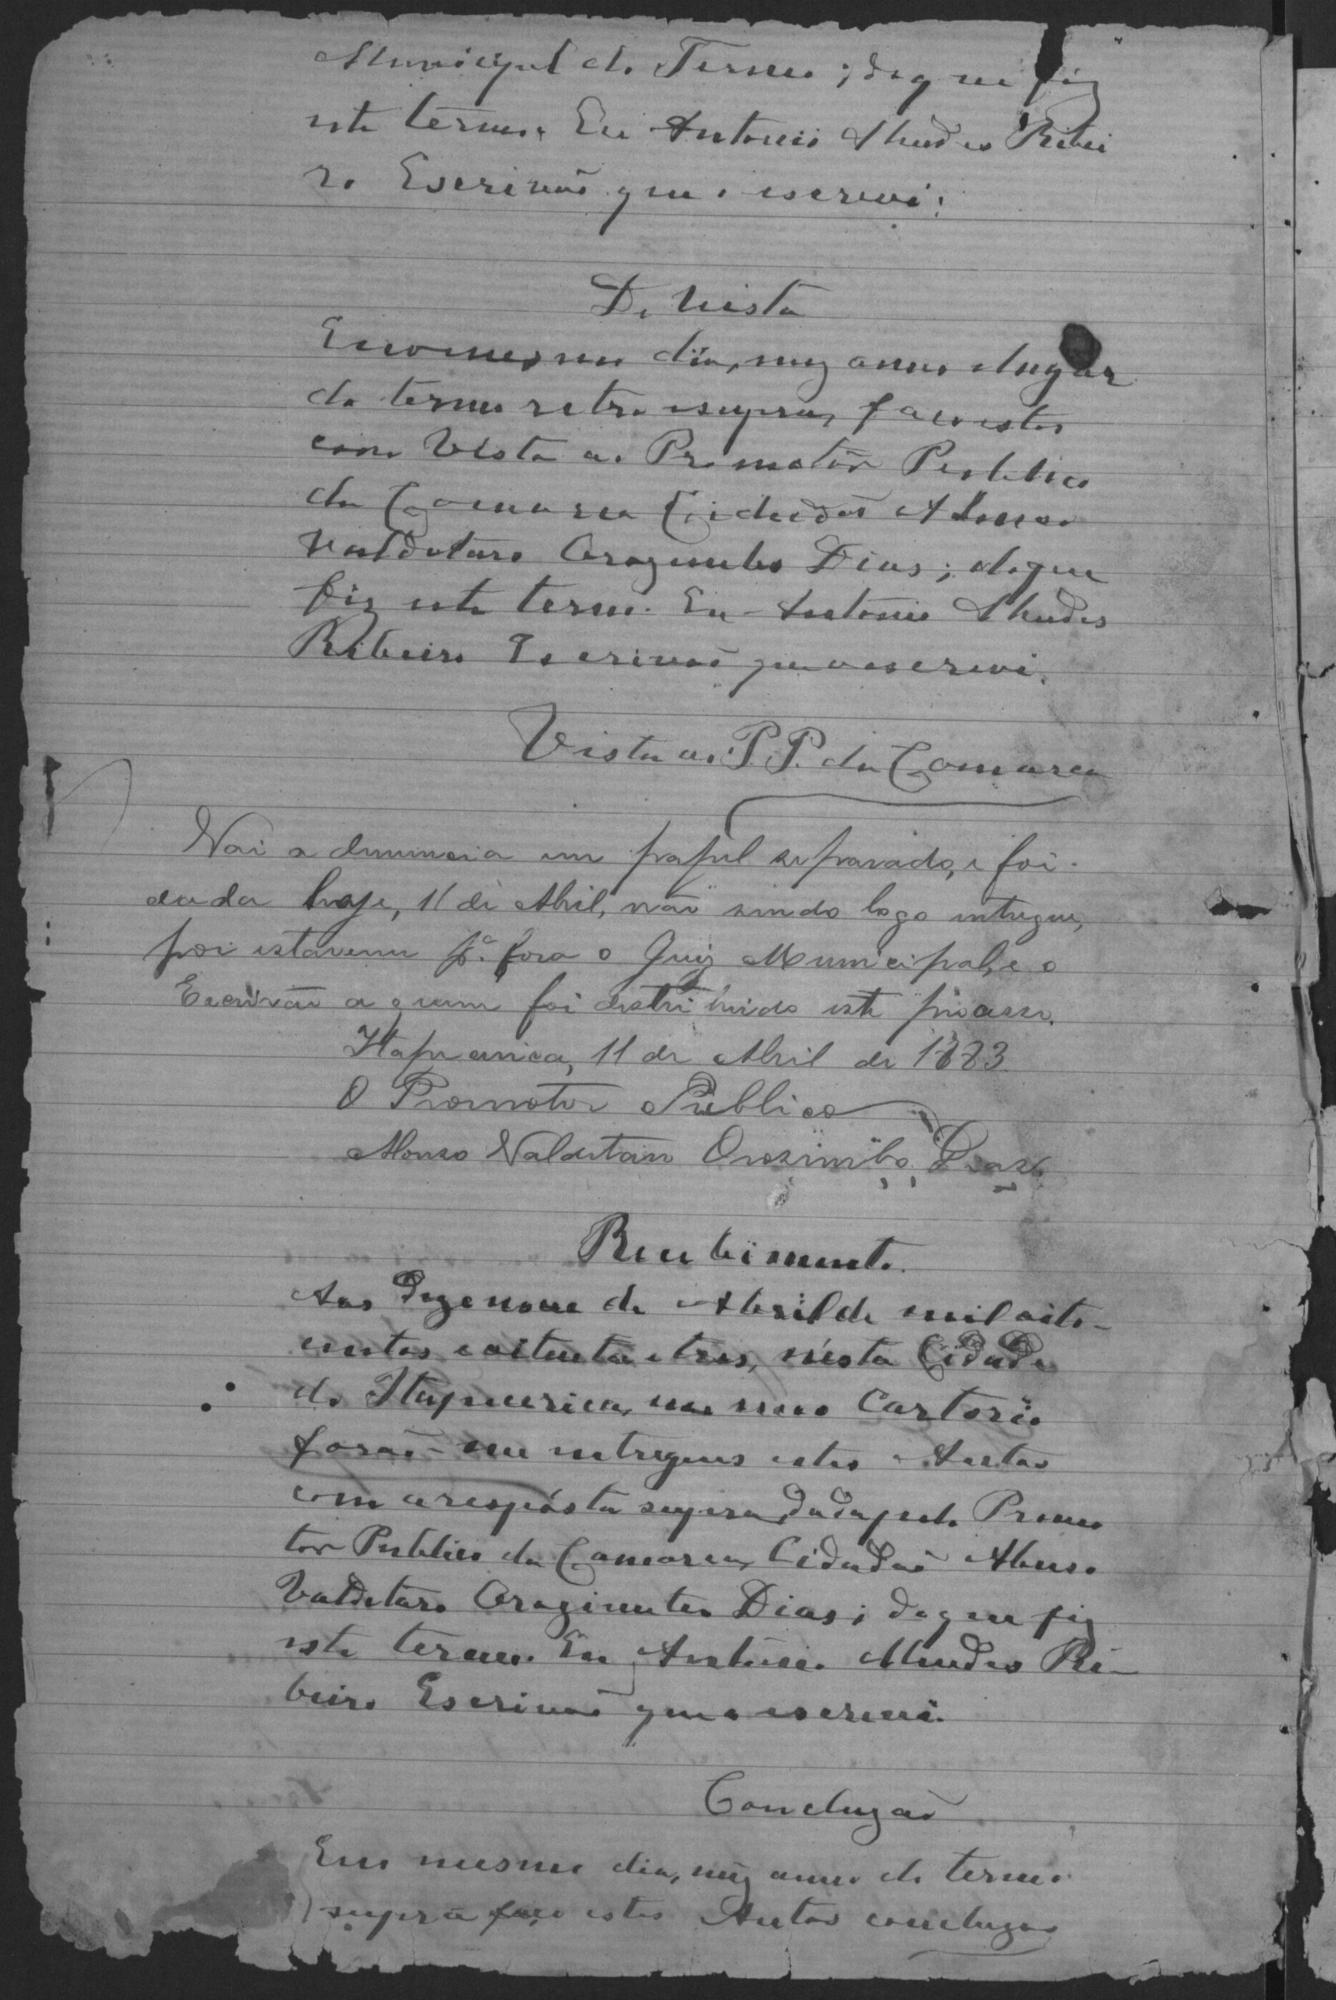 Municipal do Termo; do que fiz
este termo. Eu Antonio Mendes Ribei
ro Escrivão que o escrevi.
De Vista
E no mesmo dia, mez anno e lugar
do termo retro e supra, faço estes
com Vista ao Promotor Publico
da Comarca Cidadão Alonso
Valdetaro Orozimbo Dias; do que
fiz este termo. Eu Antonio Mendes
Ribeiro Escrivão que o escrevi.
Vista ao P. P. da Comarca
Vai a denuncia em papel separado, e foi
dada hoje, 11 de Abril, não sendo logo entregue,
por estarem p.ª fora o Juiz Municipal, e o
Escrivão a quem foi destribuido este processo.
Itapecerica, 11 de Abril de 1883
O Promotor Publico
Alonso Valdetaro Orozimbo Dias
Recebimento
Aos dezenove de Abril de mil oito-
centos e oitenta e tres, nésta Cidade
de Itapecerica, no meo Cartorio
forão-me entregues estes Autos
com a respósta supra dada pelo Promo
tor Publico da Comarca Cidadão Alonso
Valdetaro Orozimbo Dias; do que fiz
este termo. Eu Antonio Mendes Ri-
beiro Escrivão que o escrevi.
Concluzão
Em mesmo dia, mez anno do termo
supra faço estes Autos concluzos